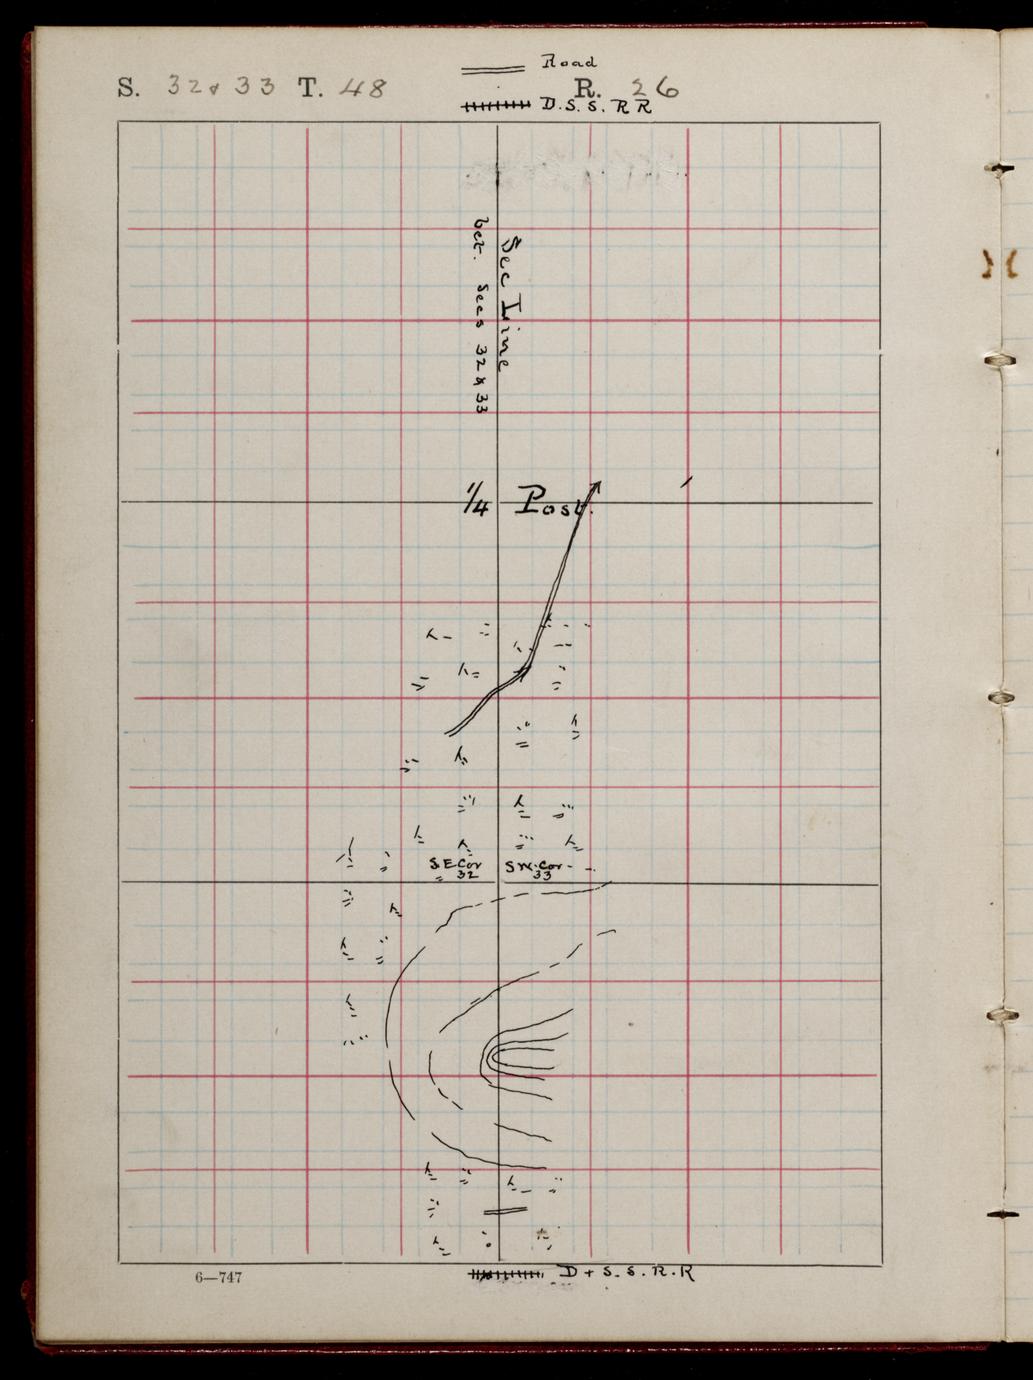 Road
S. 32 & 33 T. 48 R. 26
D. S. S. R R
Sec Line
bet. Secs 32 & 33
1/4 Post.
S.E Cor SW. Cor
32 33
6—747
D + S. S. R. R